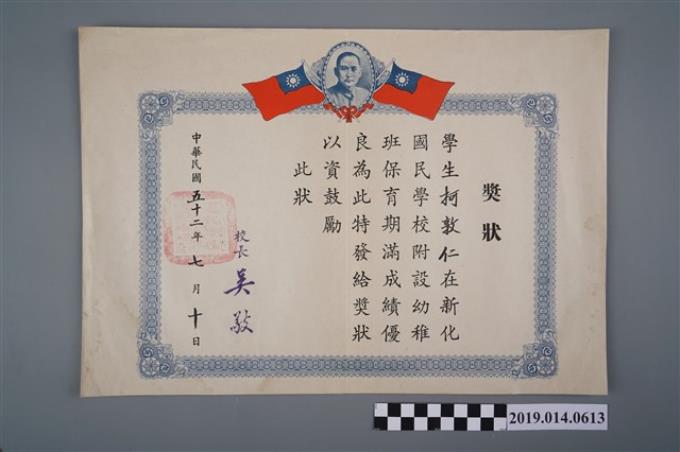 獎狀
學生柯敦仁在新化
國民學校附設幼稚
班保育期滿成績優
良為此特發給獎狀
以資鼓勵
此狀
校長 吳敬
中華民國五十二年七月十日
2019.014.0613